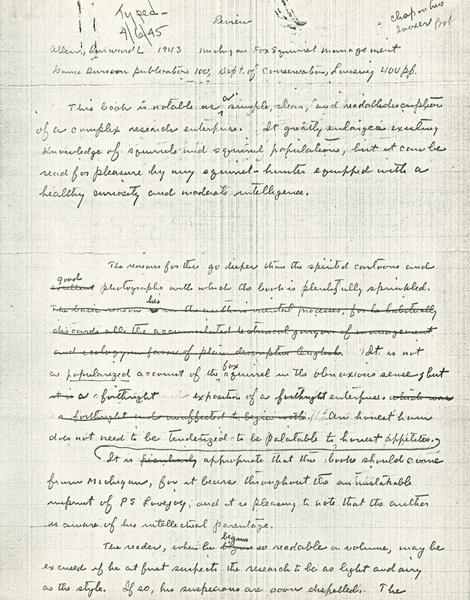 Typed
4/6/45
Review
Allen, Durward L 1943 Michigan Fox Squirrel Management
Game Division Publication 100, Dept. of Conservation, Lansing 404 pp.
This book is notable as a simple, clear, and readable description
of a complex research enterprise. It greatly enlarges existing
knowledge of squirrels and squirrel populations, but it can be
read for pleasure by any squirrel-hunter equipped with a
healthy curiosity and moderate intelligence.
The reasons for this go deeper than the spirited cartoons and
good
excellent photographs with which the book is plentifully sprinkled.
his
The basic reason is in the author's mental processes, for he habitually
discards all the accumulated technical jargon of management
and ecology in favor of plain descriptive English. It is not
fox
a popularized account of the squirrel in the obnoxious sense, but
it is a forthright exposition of a forthright enterprise which was
forthright and unaffected to begin with. An honest ham
does not need to be tenderized to be palatable to honest appetites.
It is peculiarly appropriate that this book should come
from Michigan, for it bears throughout the unmistakable
imprint of P S Lovejoy, and it is pleasing to note that the author
is aware of his intellectual parentage.
begins
The reader, when he begins so readable a volume, may be
excused if he at first suspects the research to be as light and airy
as the style. If so, his suspicions are soon dispelled. The